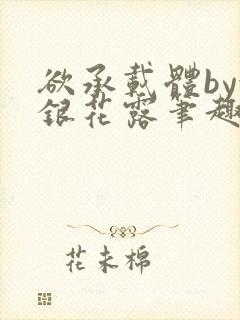 欲承載體by
銀花露筆趣
花未棉